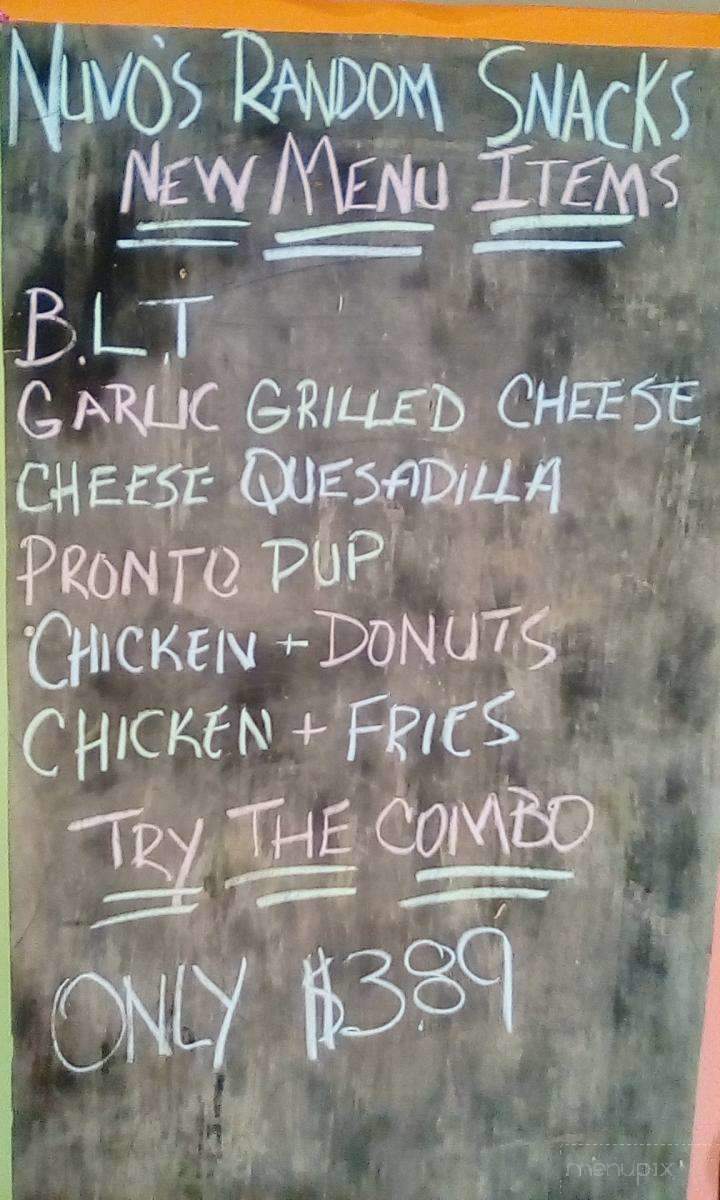 NUVO'S RANDOM SNACKS
NEW MENU ITEMS
B.L.T
GARLIC GRILLED CHEESE
CHEESE QUESADILLA
PRONTO PUP
CHICKEN + DONUTS
CHICKEN + FRIES
TRY THE COMBO
ONLY $3.89
menupix